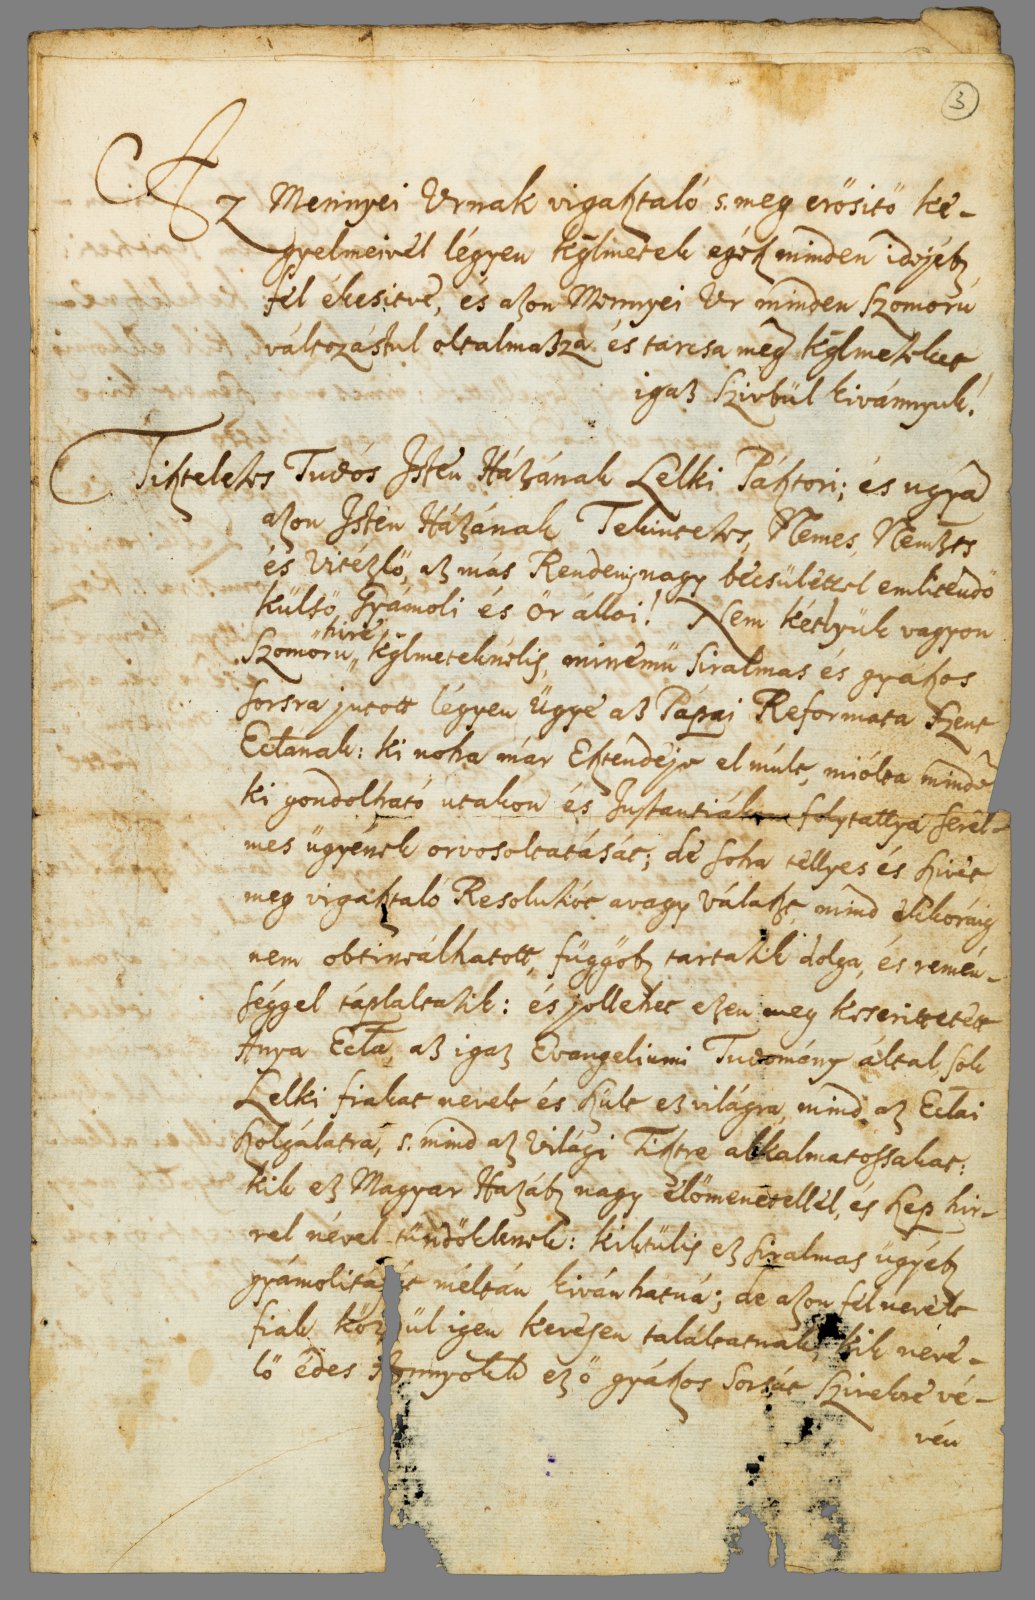 3
Az Mennyei Urnak vigasztaló s. meg erősitő ke-
gyelmeivel légyen kglmetek egész minden idejéb
fel ékesitve, és azon Mennyei Ur minden szomorú
változástul oltalmazza és tarcsa meg kglmeteket
igaz szivbül kivánnyuk!
Tiszteletes Tudós Isten Házának Lelki Pásztori; és ugyan
azon Isten Házának Tekintetes, Nemes, Nemzetes
és Vitézlő, az más Renden, nagy becsülettel emlitendő
külső Gyámoli és Őr állói! Nem kétlyük vagyon
hire
Szomorú „ kglmeteknélis, minémü siralmas és gyászos
sorsra jutott légyen Ügye az Pápai Reformata Szent
Ecclanak: ki noha már Esztendeje el múlt, miólta minden
ki gondolható utakon és Instantiákon folytattya serel-
mes ügyének orvosoltatását; de soha tellyes és szivet
meg vigasztaló Resolutiót avagy Választ, mind ekkoráig
nem obtineálhatott, függöb tartatik dolga, és remén-
séggel tápláltatik: és jollehet ezen meg keserittetett
Anya Eccla, az igaz Evangeliumi Tudomány által, sok
Lelki fiakat nevelt és szült ez világra, mind az Ecclai
szolgálatra, s. mind az Világi Tisztre alkalmatossakat;
kik ez Magyar Hazáb nagy előmenetellel, és szep hir-
rel névvel tündöklenek: kiktülis ez siralmas ügyéb
gyámolitását méltán kivánhatná; de azon fel nevelt
fiak közzül igen kevesen találtatnak, kik neve-
lő édes Annyoknk ez ő gyászos sorsát szivekre vé-
vén